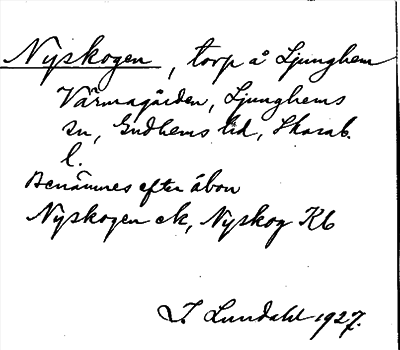 Nyskogen, torp å Ljunghem
Värmagården, Ljunghems
sn, Gudhems hd, Skarab.
l.
Benämnes efter åbon
Nyskogen ek, Nyskog Kb
I. Lundahl 1927.